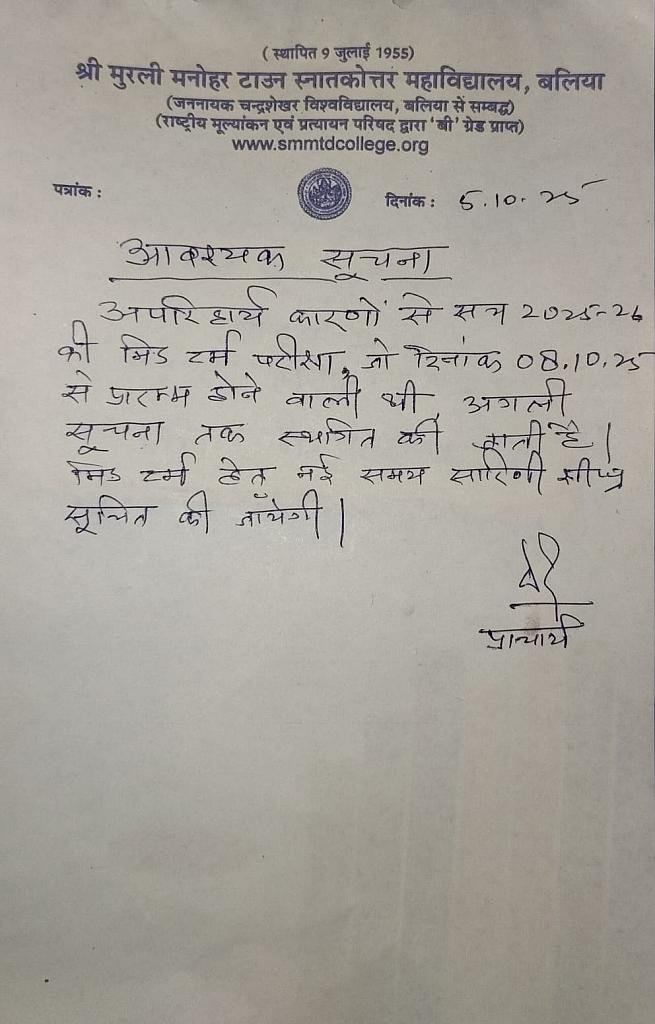 ( स्थापित 9 जुलाई 1955)
श्री मुरली मनोहर टाउन स्नातकोत्तर महाविद्यालय, बलिया
(जननायक चन्द्रशेखर विश्वविद्यालय, बलिया से सम्बद्ध)
(राष्ट्रीय मूल्यांकन एवं प्रत्यायन परिषद द्वारा 'बी' ग्रेड प्राप्त)
www.smmtdcollege.org
पत्रांक :
दिनांक : 5.10.25
आवश्यक सूचना
अपरिहार्य कारणों से सत्र 2025-26
की मिड टर्म परीक्षा, जो दिनांक 08.10.25
से प्रारम्भ होने वाली थी, अगली
सूचना तक स्थगित की जाती है।
मिड टर्म हेतु नई समय सारिणी शीघ्र
सूचित की जायेगी।
प्राचार्य